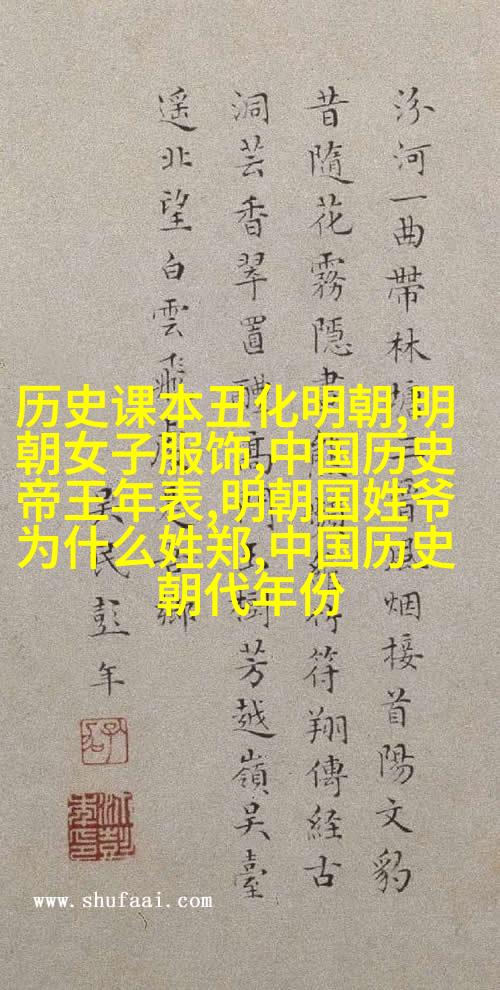 汾河一曲帶林塘
烟接首陽文豹
昔隨花霧隱
符翔傳経古
洞芸香翠置醴高
芳越嶺吴臺
遥北望白雲飛
吴民彭年
历史课本丑化明朝,明
朝女子服饰,中国历史
帝王年表,明朝国姓爷
为什么姓郑,中国历史
朝代年份
www.shufaai.com